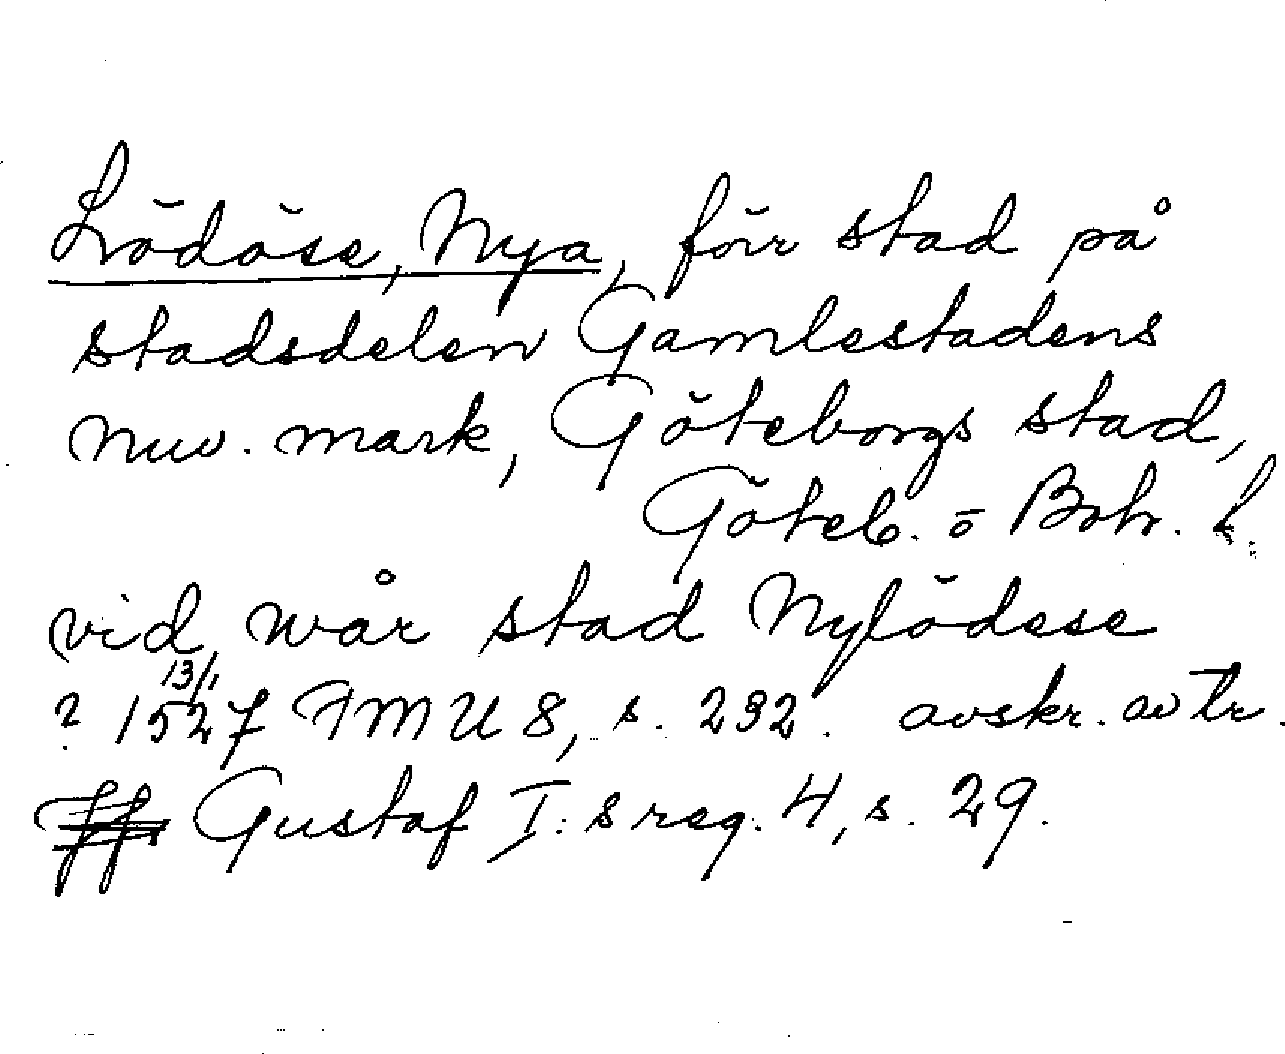 Lödöse, Nya, förr stad på
stadsdelen Gamlestadens
nuv. mark, Göteborgs stad,
Göteb. o Boh. l.
vid wår stad Nylödese
? 13/1 1527 FMU 8, s. 292. avskr. av tr.
Gustaf I:s reg. 4, s. 29.